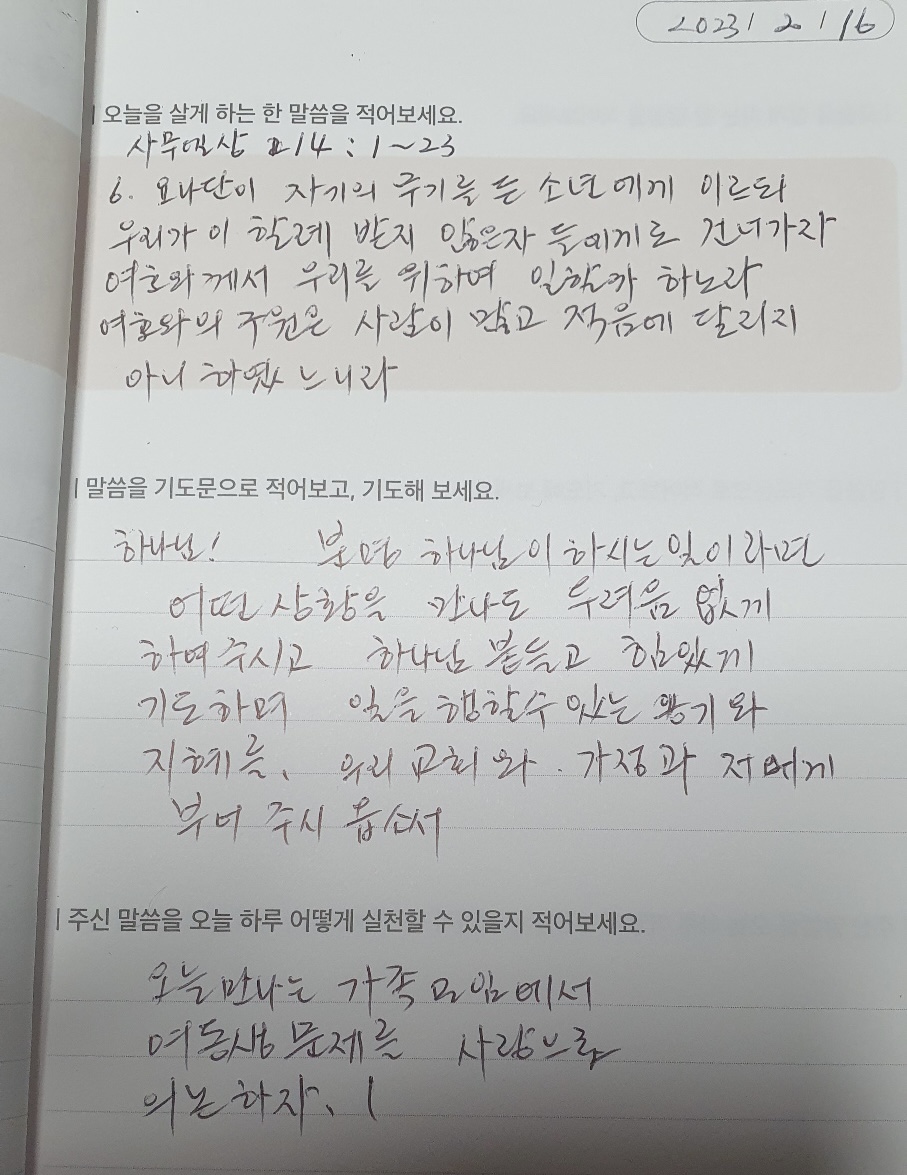 2023 / 2 / 16
| 오늘을 살게 하는 한 말씀을 적어보세요.
사무엘상 14 : 1~23
6. 요나단이 자기의 무기를 든 소년에게 이르되
우리가 이 할례 받지 않은자 들에게로 건너가자
여호와께서 우리를 위하여 일할까 하노라
여호와의 구원은 사람이 많고 적음에 달리지
아니 하였느니라
| 말씀을 기도문으로 적어보고, 기도해 보세요.
하나님! 분명 하나님이 하시는 일이라면
어떤 상황을 만나도 두려움 없게
하여주시고 하나님 붙들고 힘있게
기도하며 일을 행할수 있는 용기와
지혜를, 우리 교회와. 가정과 저에게
부어 주시 옵소서
| 주신 말씀을 오늘 하루 어떻게 실천할 수 있을지 적어보세요.
오늘만나는 가족 모임에서
여동생문제를 사랑으로
의논하자. !